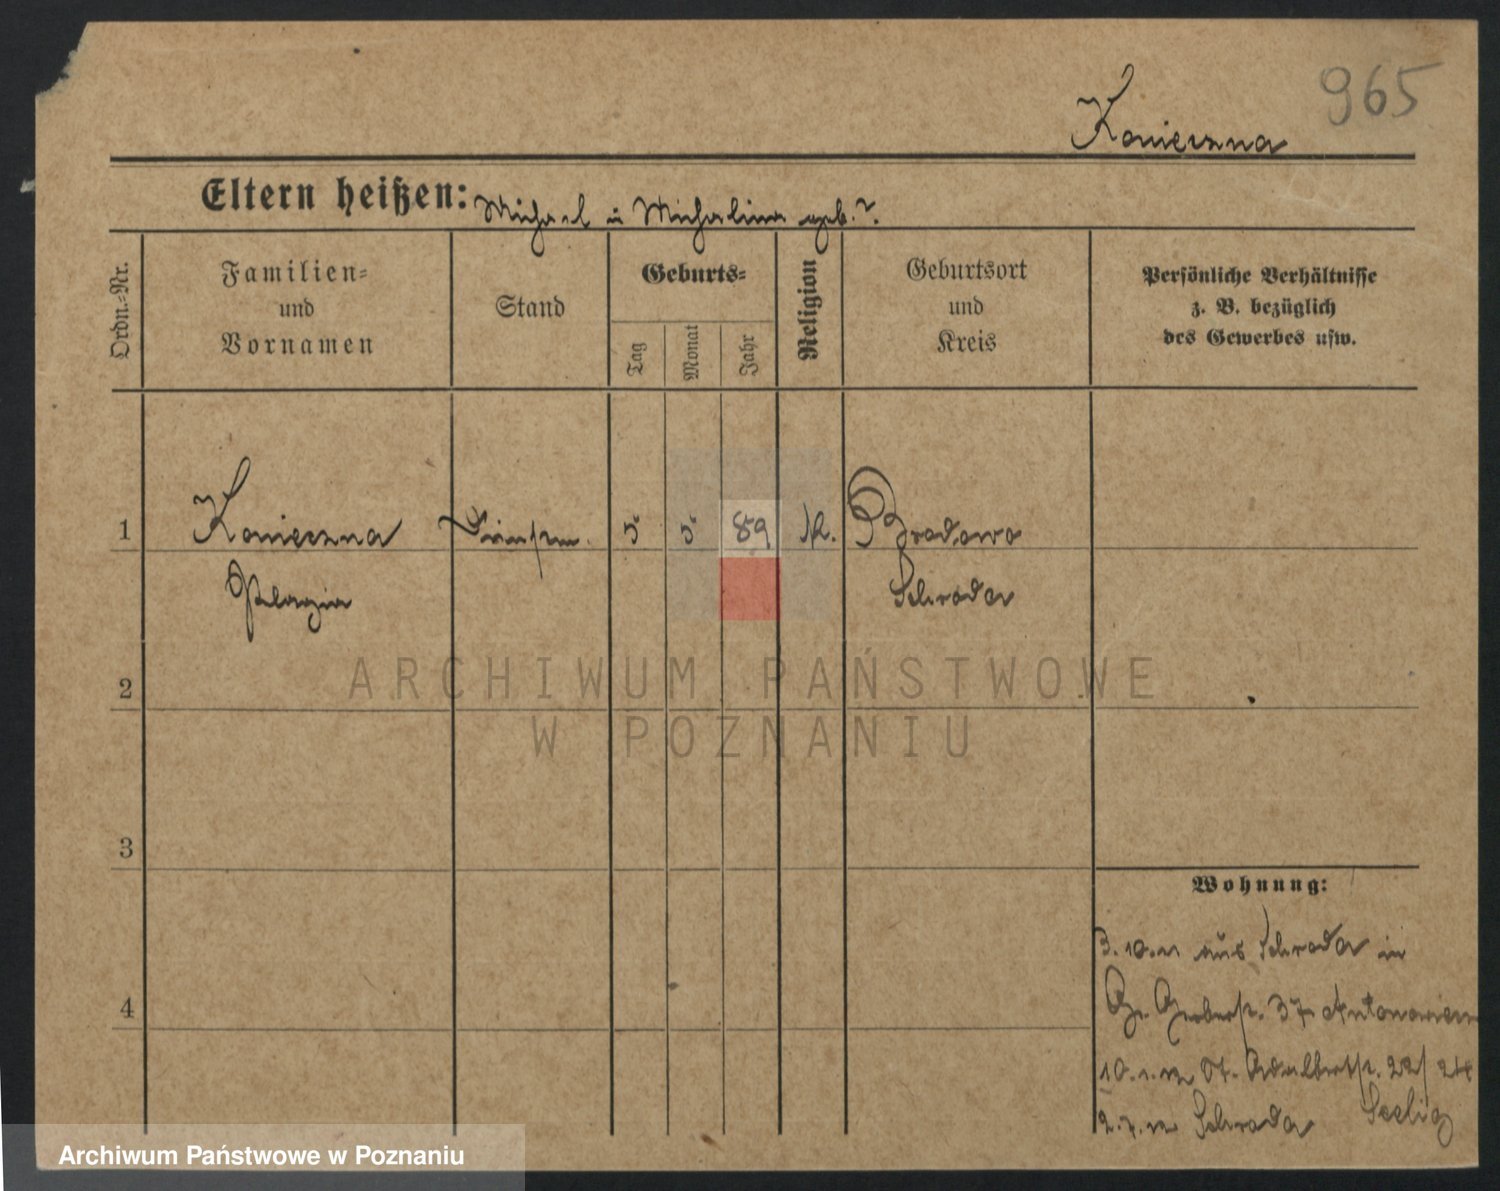 965
Konieczna
Eltern heißen: Michael u Michalina geb. ?.
Ordn.=Nr.
Familien=
und
Vornamen
Stand
Geburts=
Tag
Monat
Jahr
Religion
Geburtsort
und
Kreis
Persönliche Verhältnisse
z. B. bezüglich
des Gewerbes usw.
1
Konieczna
Pelagia
5
5
89
K.
Brodowo
Schroda
2
3
4
ARCHIWUM PAŃSTWOWE
W POZNANIU
Wohnung:
3.10.11 aus Schroda in
Gr. Gerberstr. 37
10.1.12 St. Adalbertstr. 22/24
2.7.12 Schroda Seelig
Archiwum Państwowe w Poznaniu